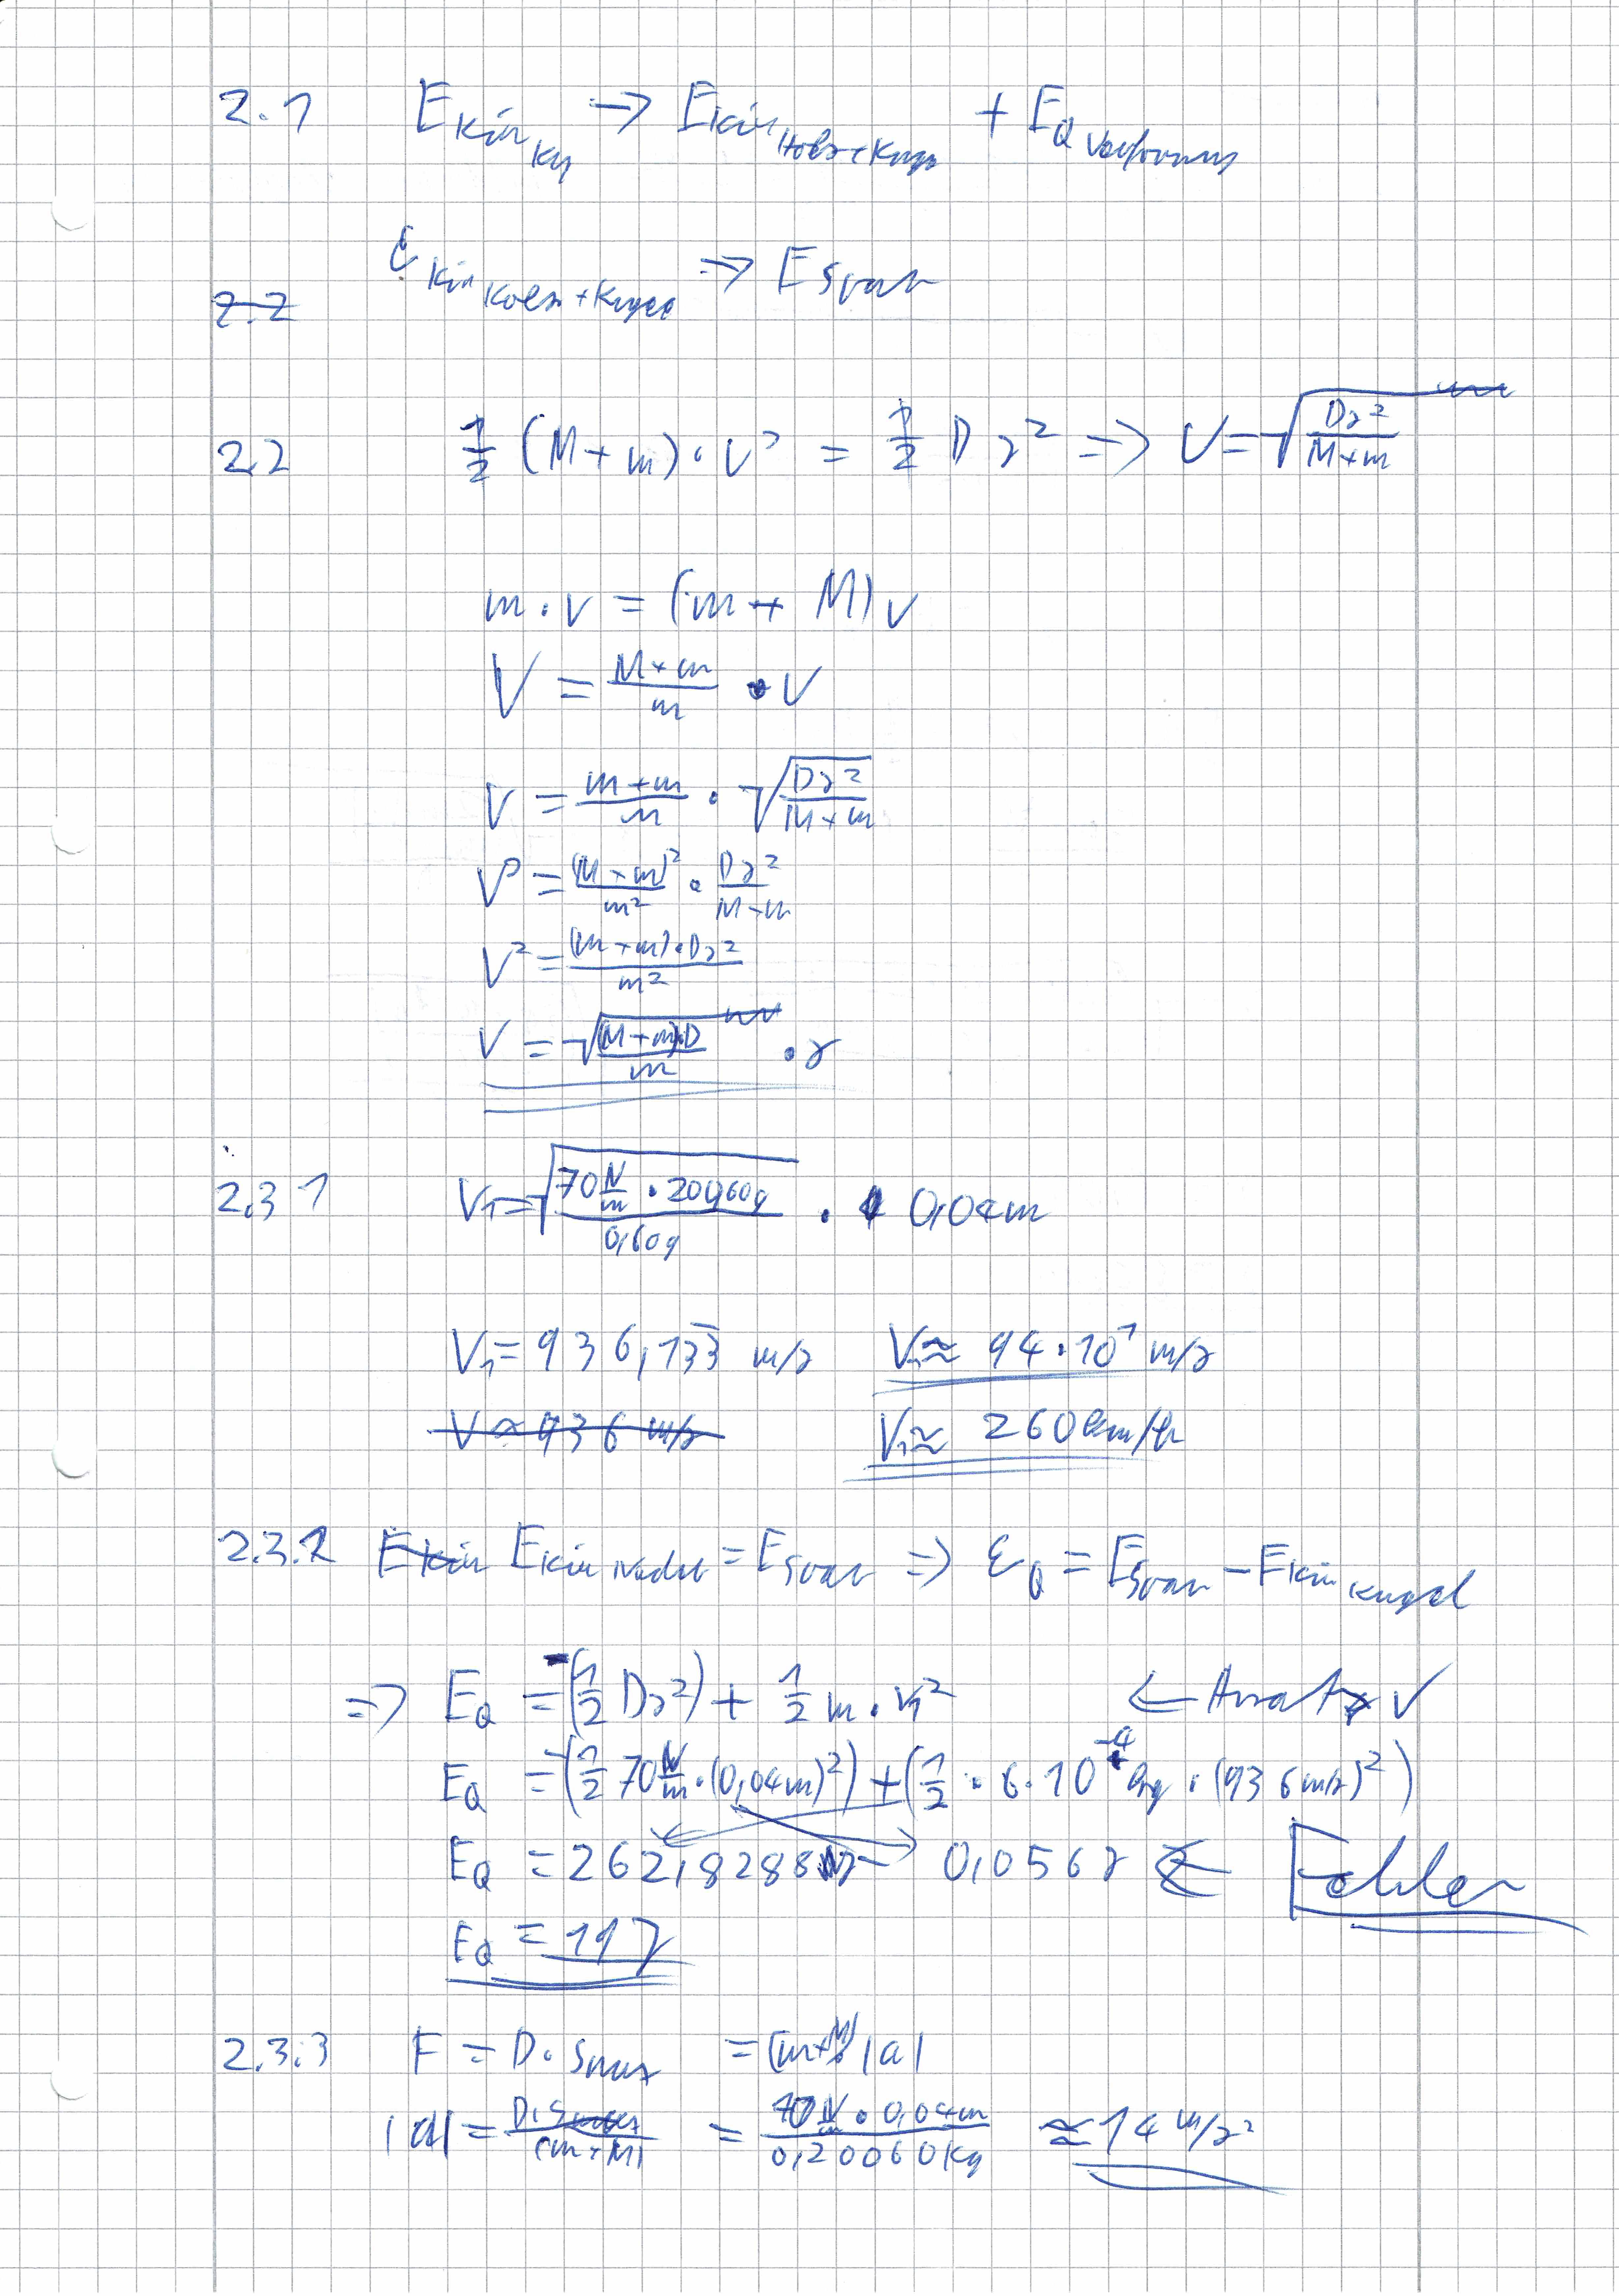 2.1 E_kin_Kug → E_kin_Holz+Kugel + E_Q Verformung
E_kin Holz+Kugel => E_Spann
2.2
2.2 1/2 (M+m)·v² = 1/2 D s² => V = √(Ds²/(M+m))
m·v = (m+M) v
V = (M+m)/m · v
V = (m+m)/m · √(Ds²/(M+m))
V² = (M+m)²/m² · Ds²/(M+m)
V² = ((m+m)·Ds²)/m²
V = √((M+m)·D/m) · s
2.3 1 V₁ = √((70 N/m · 200,60g)/0,60g) · 0,04m
V₁ = 936,133 m/s V₁ ≈ 94·10¹ m/s
V ≈ 936 m/s V₁ ≈ 260 km/h
2.3.2 Ekin Ekin Nachh = E_Spann => E_Q = E_Spann − E_kin Kugel
=> E_Q = −(1/2 Ds²) + 1/2 m·v₁² ← Ansatz ✓
E_Q = −(1/2 70 N/m·(0,04m)²) + (1/2 · 6·10⁻⁴ kg · (936 m/s)²)
E_Q = 262,8288 J − 0,056 J ← Fehler
E_Q = 11 J
2.3.3 F = D·s_max = (m+M) |a|
|a| = D·s_max/(m+M) = (70 N/m · 0,04m)/0,20060 kg ≈ 14 m/s²